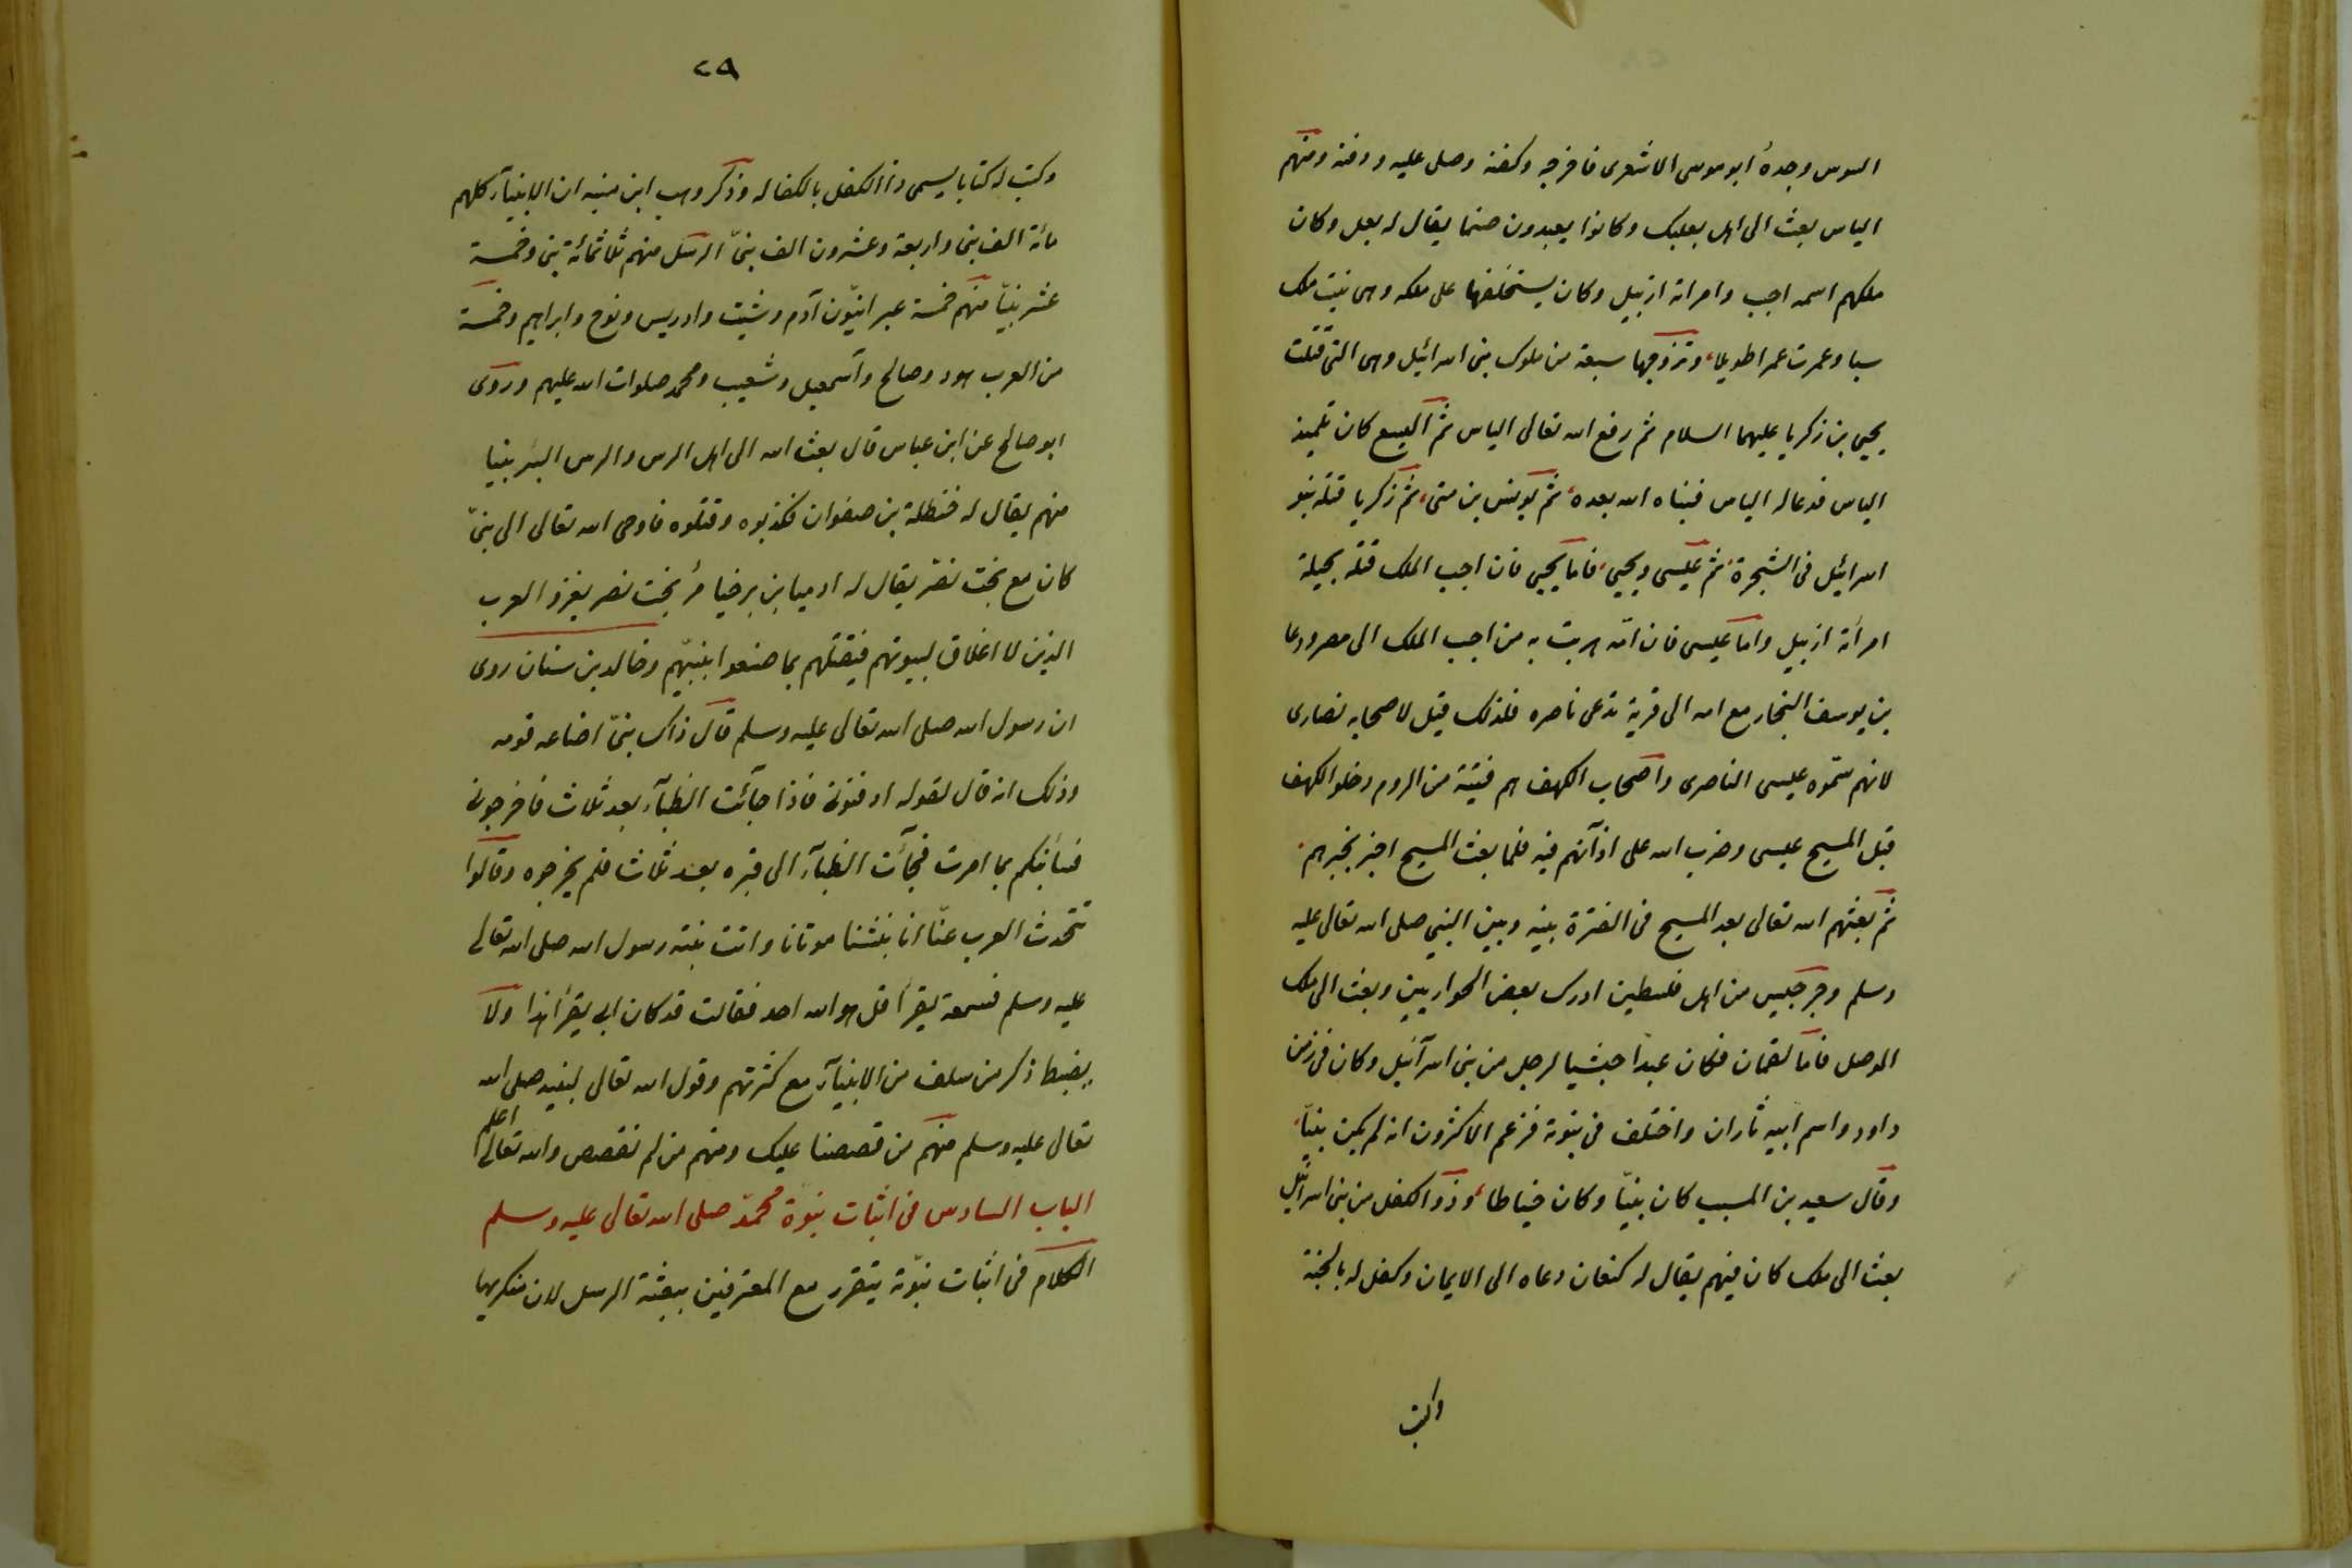 السوس وجده ابو موسى الاشعرى فاخرجه وكفنه وصلى عليه ودفنه ومنهم
الياس بعث الى اهل بعلبك وكانوا يعبدون صنما يقال له بعل وكان
ملكهم اسمه اجب وامراته ازبيل وكان يستخلفها على ملكه وهى بنت ملك
سبا وعمرت عمرا طويلا، وتزوجها سبعة من ملوك بنى اسرائيل وهى التى قتلت
يحيى بن زكريا عليهما السلام ثم رفع الله تعالى الياس ثم اليسع كان تلميذ
الياس فدعا له الياس فنبأه الله بعده، ثم يونس بن متى، ثم زكريا قتله بنو
اسرائيل فى الشجرة، ثم عيسى ويحيى، فاما يحيى فان اجب الملك قتله بحيلة
امرأته ازبيل واما عيسى فان امّه هربت به من اجب الملك الى مصر ودعا
بن يوسف النجار مع امه الى قرية تدعى ناصره فلذلك قيل لاصحابه نصارى
لانهم سمّوه عيسى الناصرى واصحاب الكهف هم فتية من الروم دخلوا الكهف
قبل المسيح عيسى وضرب الله على اذآنهم فيه فلما بعث المسيح اخبر بخبرهم
ثم بعثهم الله تعالى بعد المسيح فى الفترة بينه وبين النبي صلى الله تعالى عليه
وسلم وجرجيس من اهل فلسطين ادرك بعض الحواريين وبعث الى ملك
الموصل فاما لقمان فكان عبدا حبشيا لرجل من بنى اسرآئيل وكان فى زمن
داود واسم ابيه ثاران واختلف فى نبوته فزعم الاكثرون انه لم يكن نبيّا،
وقال سعيد بن المسيب كان نبيّا وكان خياطا، وذو الكفل من بنى اسرائيل
بعث الى ملك كان فيهم يقال له كنعان دعاه الى الايمان وكفل له بالجنة
وكتب
٢٩
وكتب له كتابا يسمى ذا الكفل بالكفاله وذكر وهب ابن منبه ان الانبيآء كلهم
مائة الف نبى واربعة وعشرون الف نبىّ الرسل منهم ثلاثمائة نبى وخمسة
عشر نبيّا منهم خمسة عبرانيّون آدم وشيت وادريس ونوح وابراهيم وخمسة
من العرب هود وصالح وآسمعيل وشعيب ومحمد صلوات الله عليهم وروى
ابو صالح عن ابن عباس قال بعث الله الى اهل الرس والرس البئر نبيا
منهم يقال له حنظلة بن صفوان فكذبوه وقتلوه فاوحى الله تعالى الى نبىّ
كان مع بخت نصّر يقال له ارميا بن برخيا مر بخت نصر يغزو العرب
الذين لا اغلاق لبيوتهم فيقتلهم بما صنعوا بنبيّهم وخالد بن سنان روى
ان رسول الله صلى الله تعالى عليه وسلم قال ذاك نبىّ اضاعه قومه
وذلك انه قال لقومه ادفنونى فاذا جآئت الظبآء بعد ثلاث فاخرجونى
فسأنبئكم بما امرت فجآئت الظبآء الى قبره بعد ثلاث فلم يخرجوه وقالوا
تتحدث العرب عنّا انا نبشنا موتانا واتت بنته رسول الله صلى الله تعالى
عليه وسلم فسمعته يقرأ قل هو الله احد فقالت قد كان ابى يقرأ هذا ولا
يضبط ذكر من سلف من الانبيآء مع كثرتهم وقول الله تعالى لنبيه صلى الله
تعالى عليه وسلم منهم من قصصنا عليك ومنهم من لم نقصص والله تعالى اعلم
الباب السادس فى اثبات نبوة محمّد صلى الله تعالى عليه وسلم
الكلام فى اثبات نبوّته يتقرر مع المعترفين ببعثة الرسل لان منكريها